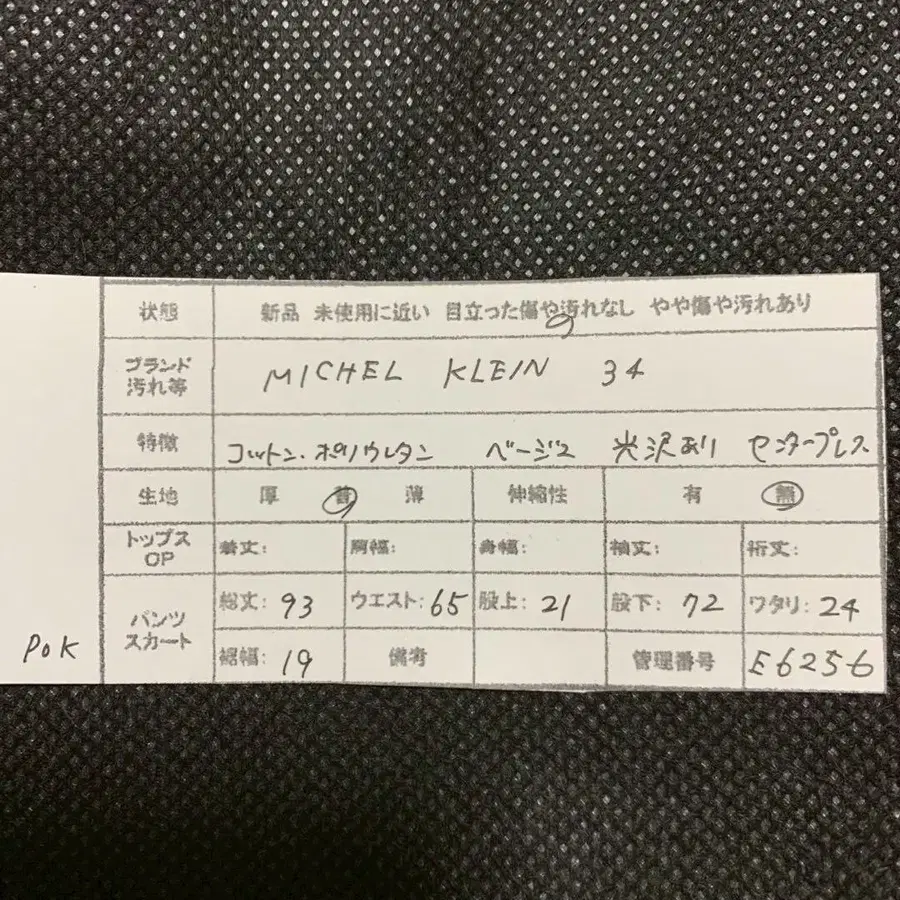 状態 新品 未使用に近い 目立った傷や汚れなし やや傷や汚れあり
ブランド
汚れ等 MICHEL KLEIN 34
特徴 コットン・ポリウレタン ベージュ 光沢あり センタープレス
生地 厚 普 薄 伸縮性 有 無
トップス
OP 着丈: 胸幅: 身幅: 袖丈: 裄丈:
パンツ
スカート 総丈: 93 ウエスト: 65 股上: 21 股下: 72 ワタリ: 24
裾幅: 19 備考 管理番号 E6256
POK